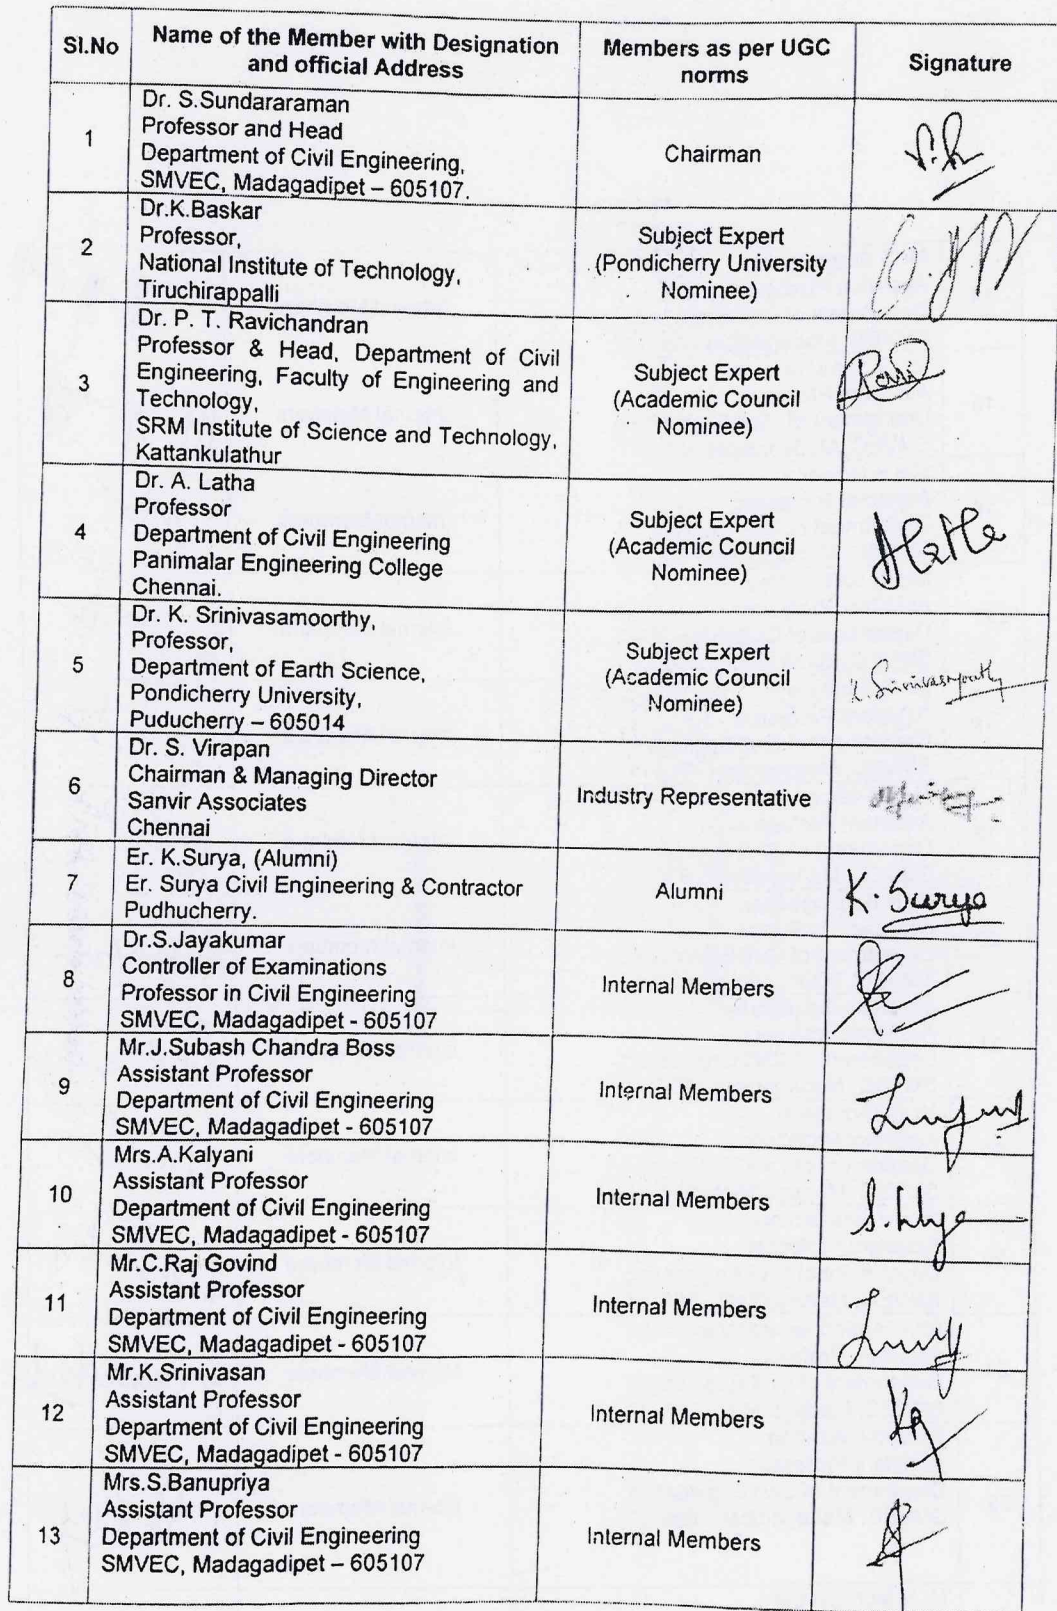 Sl.No
Name of the Member with Designation
and official Address
Members as per UGC
norms
Signature
1
Dr. S.Sundararaman
Professor and Head
Department of Civil Engineering,
SMVEC, Madagadipet – 605107.
Chairman
2
Dr.K.Baskar
Professor,
National Institute of Technology,
Tiruchirappalli
Subject Expert
(Pondicherry University
Nominee)
3
Dr. P. T. Ravichandran
Professor & Head, Department of Civil
Engineering, Faculty of Engineering and
Technology,
SRM Institute of Science and Technology,
Kattankulathur
Subject Expert
(Academic Council
Nominee)
Ravi
4
Dr. A. Latha
Professor
Department of Civil Engineering
Panimalar Engineering College
Chennai.
Subject Expert
(Academic Council
Nominee)
5
Dr. K. Srinivasamoorthy,
Professor,
Department of Earth Science,
Pondicherry University,
Puducherry – 605014
Subject Expert
(Academic Council
Nominee)
6
Dr. S. Virapan
Chairman & Managing Director
Sanvir Associates
Chennai
Industry Representative
7
Er. K.Surya, (Alumni)
Er. Surya Civil Engineering & Contractor
Pudhucherry.
Alumni
K. Surya
8
Dr.S.Jayakumar
Controller of Examinations
Professor in Civil Engineering
SMVEC, Madagadipet - 605107
Internal Members
9
Mr.J.Subash Chandra Boss
Assistant Professor
Department of Civil Engineering
SMVEC, Madagadipet - 605107
Internal Members
10
Mrs.A.Kalyani
Assistant Professor
Department of Civil Engineering
SMVEC, Madagadipet - 605107
Internal Members
11
Mr.C.Raj Govind
Assistant Professor
Department of Civil Engineering
SMVEC, Madagadipet - 605107
Internal Members
12
Mr.K.Srinivasan
Assistant Professor
Department of Civil Engineering
SMVEC, Madagadipet - 605107
Internal Members
13
Mrs.S.Banupriya
Assistant Professor
Department of Civil Engineering
SMVEC, Madagadipet – 605107
Internal Members